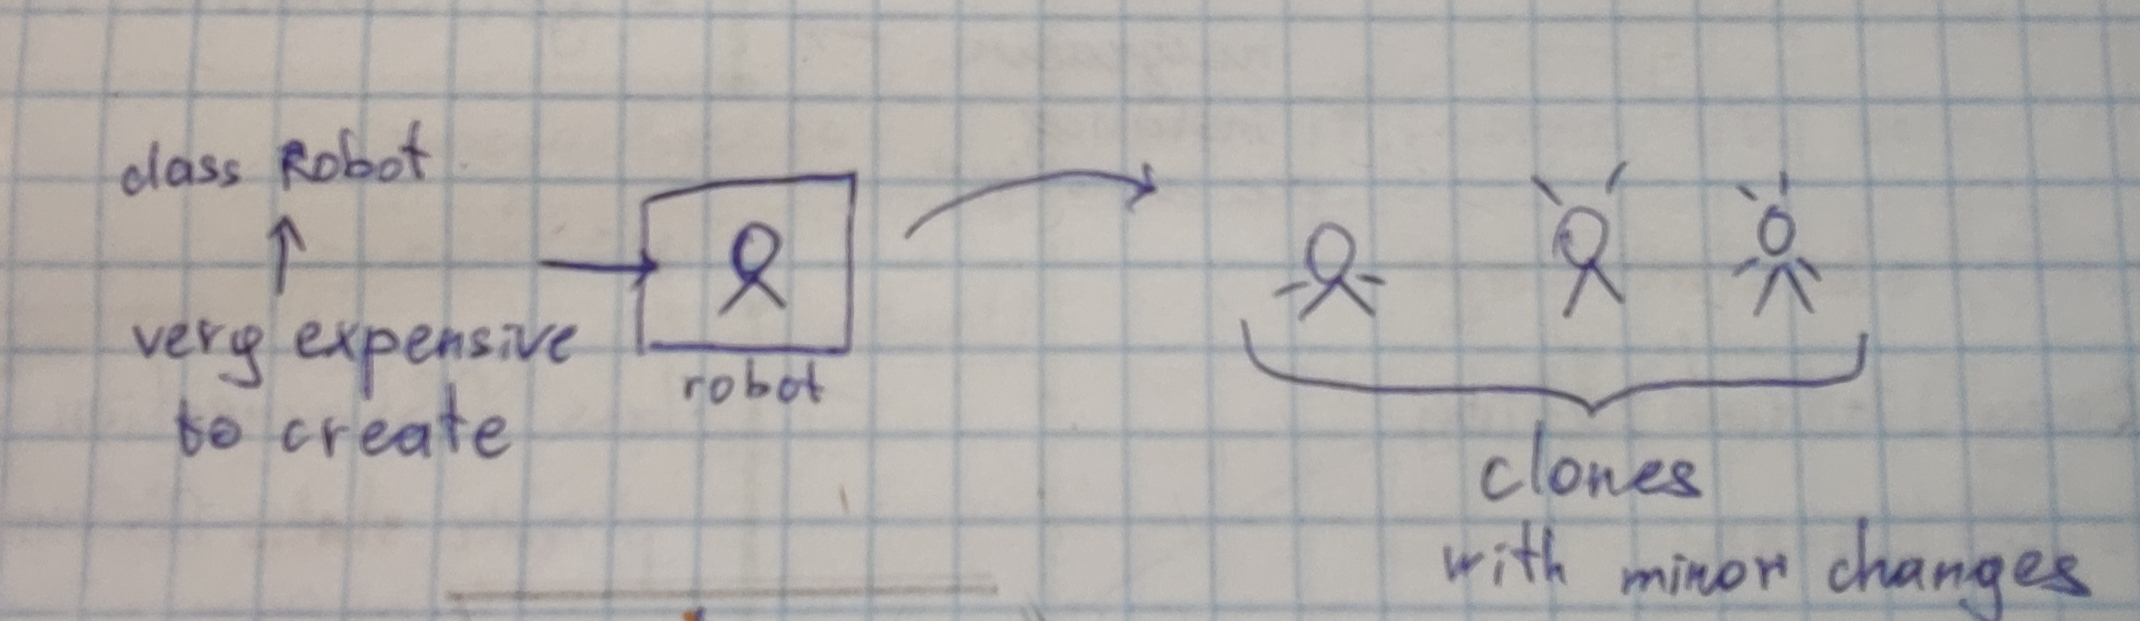 class Robot
very expensive
to create
robot
clones
with minor changes